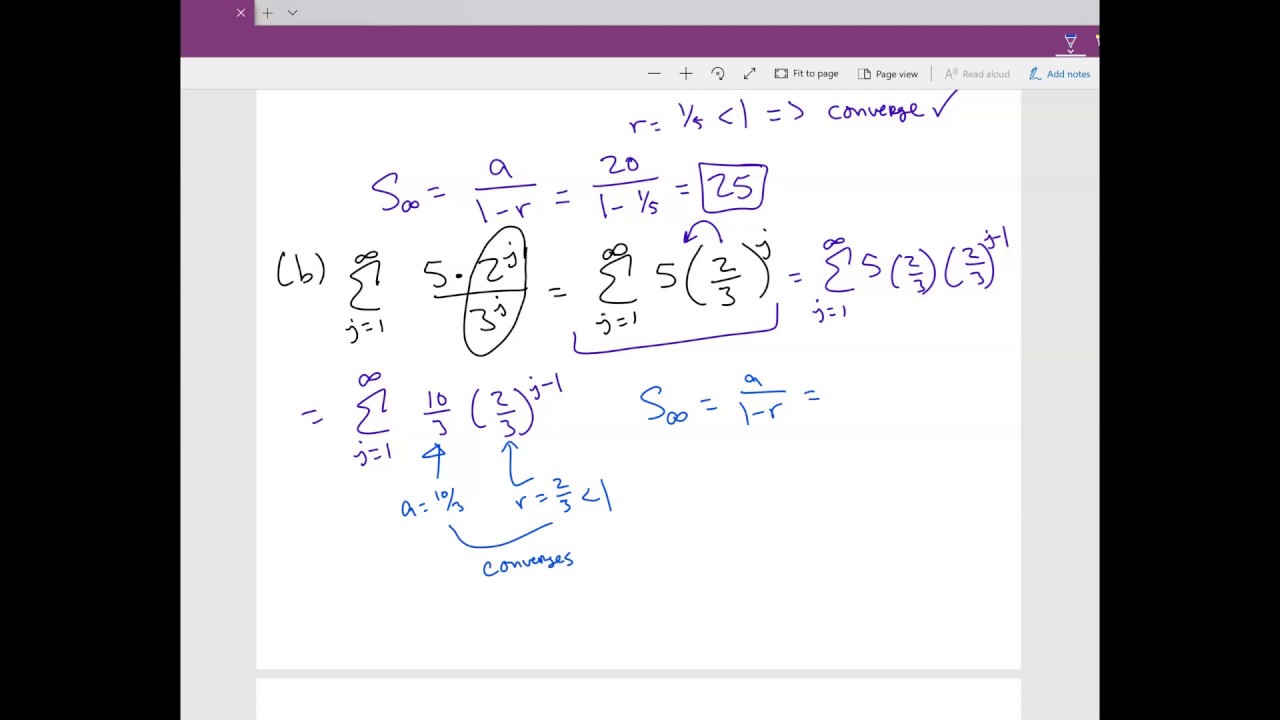 Fit to page Page view Read aloud Add notes
r = 1/5 < 1 => converge ✓
S∞ = a/(1-r) = 20/(1-1/5) = 25
(b) ∞∑j=1 5·2^j/3^j = ∞∑j=1 5(2/3)^j = ∞∑j=1 5(2/3)(2/3)^j-1
= ∞∑j=1 10/3 (2/3)^j-1 S∞ = a/(1-r) =
a = 10/3 r = 2/3 < 1
converges